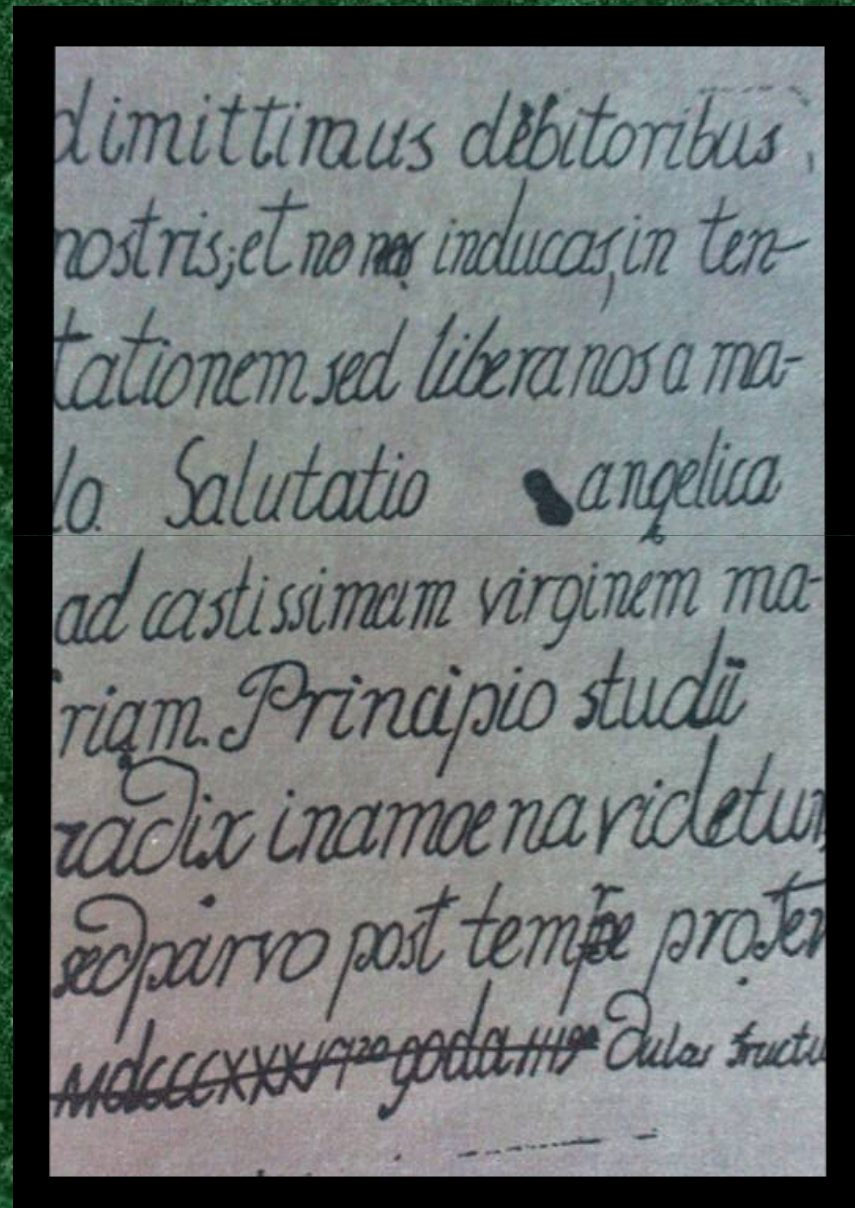 dimittimus debitoribus
nostris; et no nos inducas, in ten-
tationem sed libera nos a ma-
lo. Salutatio angelica
ad castissimam virginem ma-
riam. Principio studii
radix inamoena videtur,
sed parvo post tempore profer
MdCCCXXXV goda dulces fructu